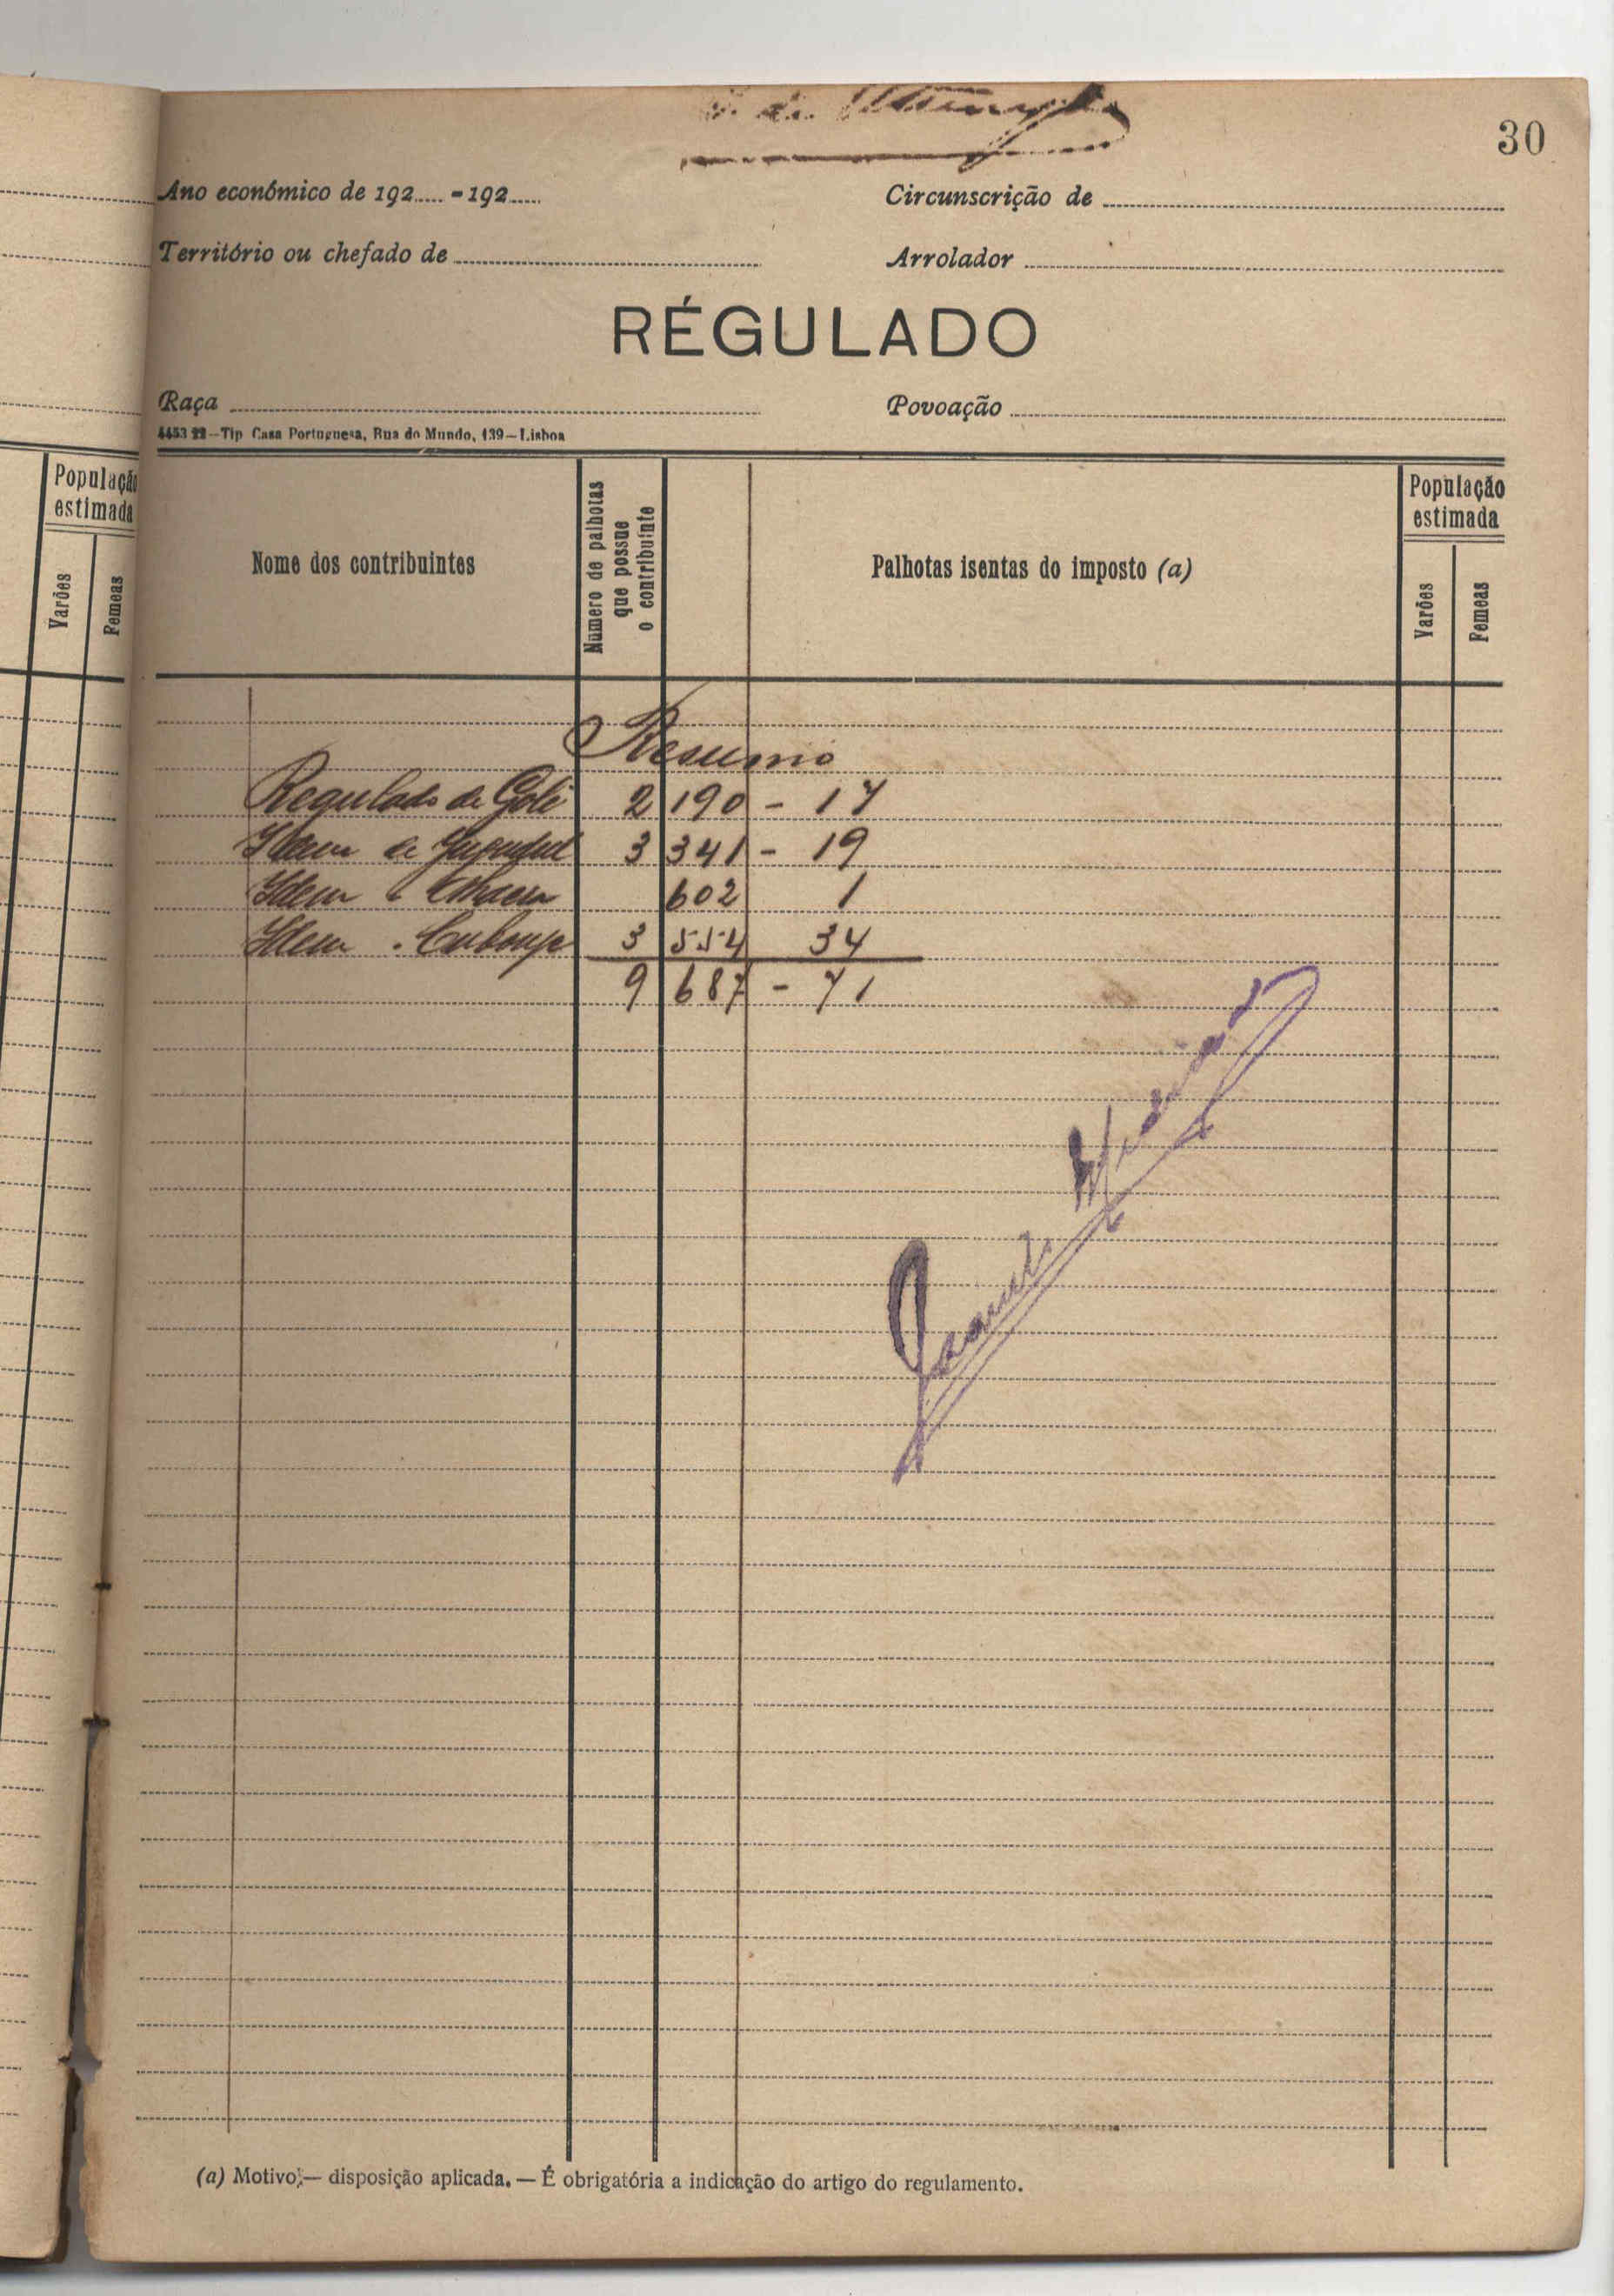 30
Ano económico de 192..... - 192.....
Circunscrição de
Território ou chefado de
Arrolador
RÉGULADO
Raça
Povoação
4453 22—Tip Casa Portuguesa, Rua do Mundo, 139—Lisboa
População estimada
Varões
Femeas
Nome dos contribuintes
Número de palhotas que possue o contribuinte
Palhotas isentas do imposto (a)
População estimada
Varões
Femeas
Resumo
Regulado de Golé 2 190 - 17
Idem de 3 341 - 19
Idem 602 1
Idem 3 554 34
9 687 - 71
(a) Motivo;— disposição aplicada. — É obrigatória a indicação do artigo do regulamento.